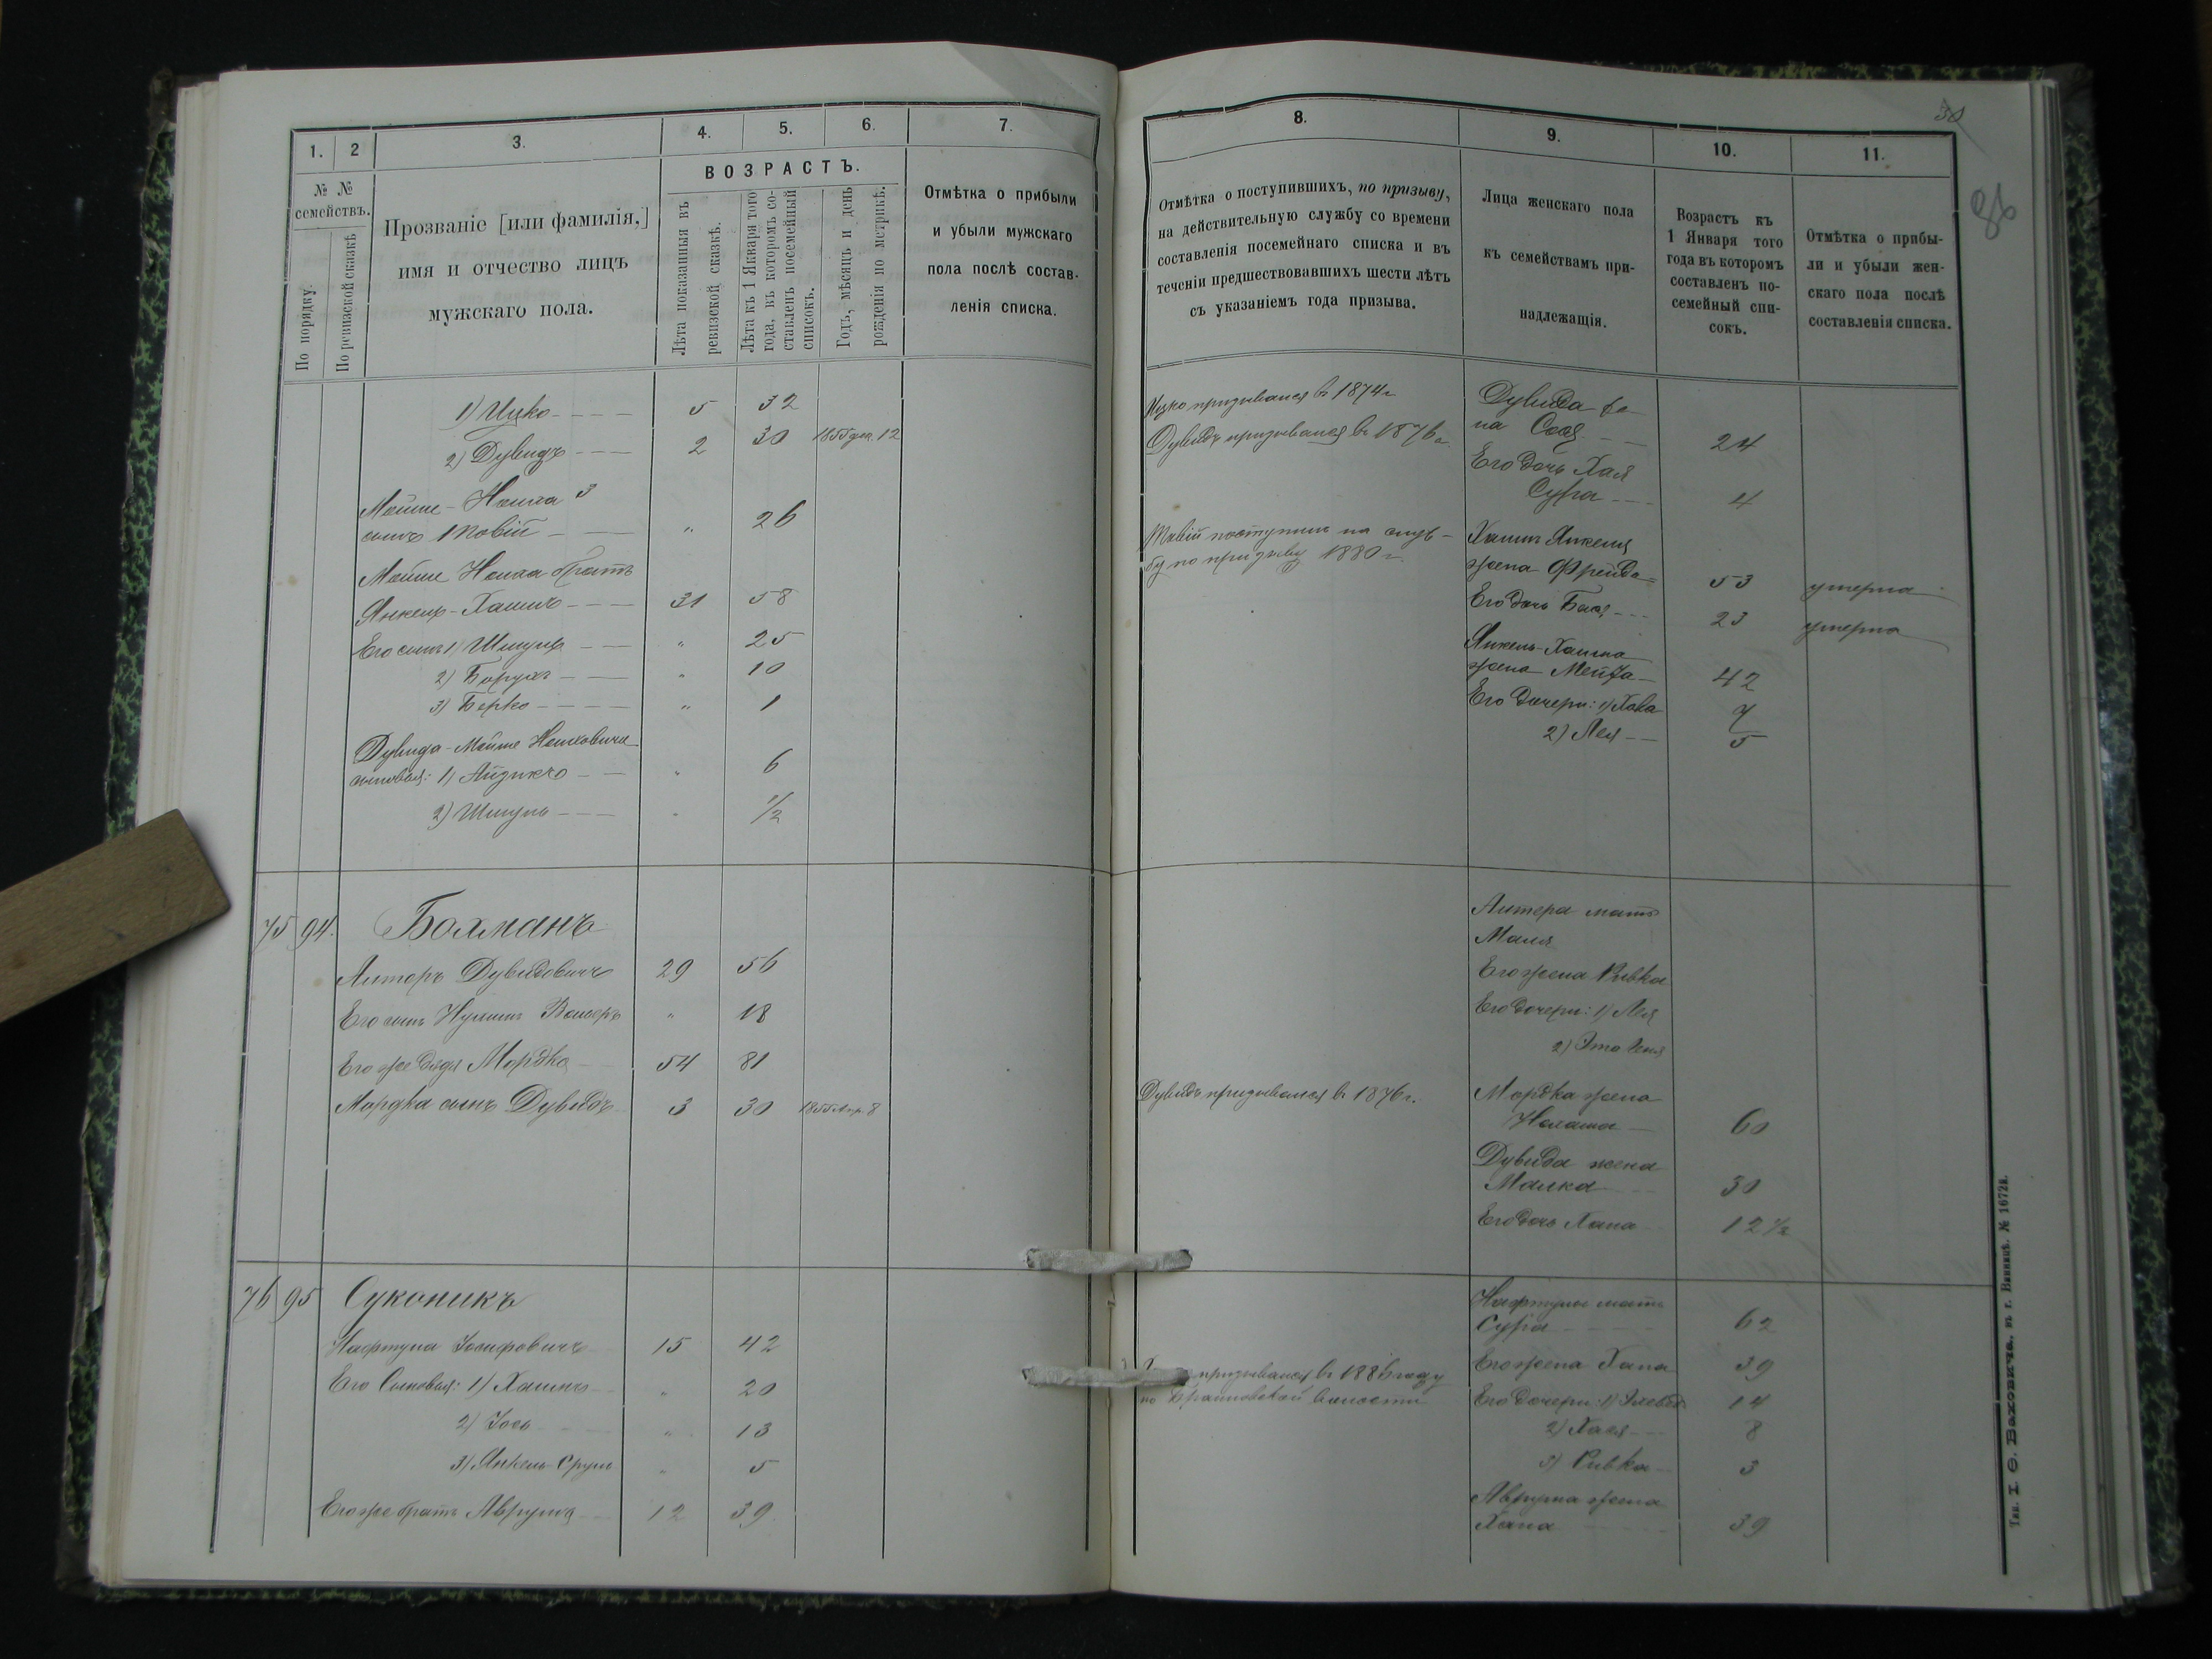 1.
2
3.
4.
5.
6.
7.
№ №
семействъ.
По порядку.
По ревизской сказкѣ
Прозваніе [или фамилія,]
имя и отчество лицъ
мужскаго пола.
ВОЗРАСТЪ.
Лѣта показанныя въ
ревизской сказкѣ.
Лѣта къ 1 Января того
года, въ которомъ со-
ставленъ посемейный
списокъ.
Годъ, мѣсяцъ и день
рожденія по метрикѣ.
Отмѣтка о прибыли
и убыли мужскаго
пола послѣ состав-
ленія списка.
1) Ицко 5 32
2) Дувидъ 2 30 1855 дек. 12
Мойше-Номха 3
сынъ Товій " 26
Мойше Номха братъ
Янкель-Хаимъ 31 58
Его сынъ 1) Шмуль " 25
2) Борухъ " 10
3) Берко " 1
Дувида-Мойше
сыновья: 1) Айзикъ " 6
2) Шмуль " 1/2
75 94. Бохманъ
Литоръ Дувидовичъ 29 56
Его сынъ Нухимъ " 18
Его же дядя Мордко 54 81
Мордка сынъ Дувидъ 3 30 1855 Апр. 8
76 95 Суконикъ
Нафтула Іосифовичъ 15 42
Его Сыновья: 1) Хаимъ " 20
2) Іось " 13
3) Янкель-Сруль " 5
Его же братъ Аврумъ 12 39
8.
9.
10.
11.
30
86
Отмѣтка о поступившихъ, по призыву,
на дѣйствительную службу со времени
составленія посемейнаго списка и въ
теченіи предшествовавшихъ шести лѣтъ
съ указаніемъ года призыва.
Лица женскаго пола
къ семействамъ при-
надлежащія.
Возрастъ къ
1 Января того
года въ которомъ
составленъ по-
семейный спи-
сокъ.
Отмѣтка о прибы-
ли и убыли жен-
скаго пола послѣ
составленія списка.
Ицко призывался въ 1874 г.
Дувидъ призывался въ 1876 г.
Товій поступилъ на служ-
бу по призыву 1880 г.
Дувида же-
на Сося 24
Его дочь Хая
Сура 4
Хаимъ Янкеля
жена Фрейда 53 умерла
Его дочь Бася 23 умерла
Янкель-Хаима
жена 42
Его дочери: 1) Хава 7
2) Лея 5
Литера мать
Маля
Его жена Ривка
Его дочери: 1) Лея
2)
Дувидъ призывался въ 1876 г.
Мордка жена
60
Дувида жена
Малка 30
Его дочь Хана 12 1/2
Нафтулы мать
Сура 62
призывался въ 1886 году
по Браиловской волости
Его жена Хана 39
Его дочери: 1) 14
2) Хася 8
3) Ривка 3
Аврума жена
Хана 39
Тип. І. Ѳ.Ваховича, въ г. Винницѣ. № 1672в.